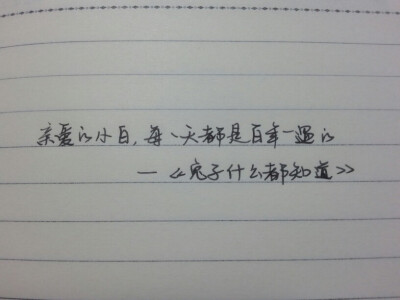 亲爱的小白，每一天都是百年一遇的
—《兔子什么都知道》